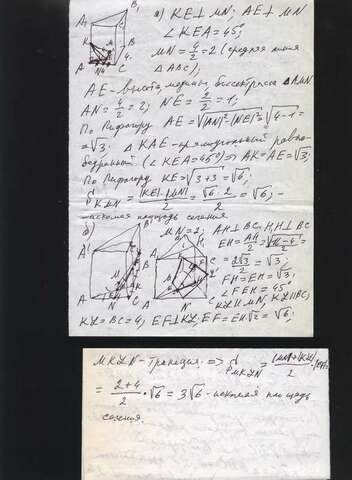 а) KE⊥MN; AE⊥MN
∠KEA=45°
MN=4/2=2 (средняя линия
△ABC);
AE-высота, медиана, биссектриса △AMN
AN=4/2=2; NE=2/2=1;
По Пифагору AE=√(|AN|²-|NE|²)=√(4-1)=
=√3; △KAE-прямоугольный равно-
бедренный (∠KEA=45°)⇒AK=AE=√3;
По Пифагору KE=√(3+3)=√6;
S KMN=|KE|·|MN|/2=√6·2/2=√6;-
искомая площадь сечения
б) MN=2; AH⊥BC, H₁H⊥BC
EH=AH/2=√(16-4)/2=
=2√3/2=√3;
FH=EH=√3;
∠FEH=45°
KL||MN, KL||BC;
KL=BC=4; EF⊥KL; EF=EH√2=√6;
MKLN-трапеция ⇒ S MKLN=(|MN|+|KL|)/2·|EF|=
=(2+4)/2·√6=3√6-искомая площадь
сечения.